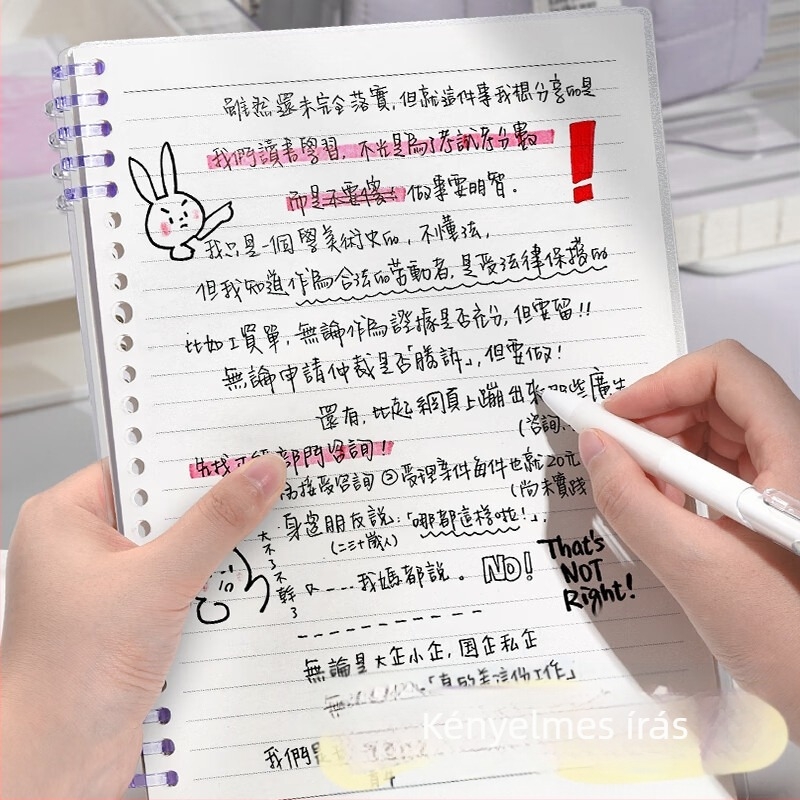 雖然還未完全落實，但就這件事我想分享的是
我們讀書學習，不光是為了考試考分數
而是不要傻 做事要明智。
我只是一個學美術史的，不懂法，
但我知道作為合法的勞動者，是受法律保護的
比如工資單，無論作為證據是否充分，但要留!!
無論申請仲裁是否「勝訴」，但要做！
還有，比起網頁上蹦出來那些廣告
(咨詢
先找 部門咨詢！
接受咨詢 ② 受理案件每件也就20元
(尚未實踐
身邊朋友說：「哪都這樣啦！」，
(二三十歲人)
大不了不幹了
又----我媽都說。 NO!
That's
NOT
Right!
無論是大企小企，国企私企
「真的羊這份工作」
我們是
Kényelmes írás